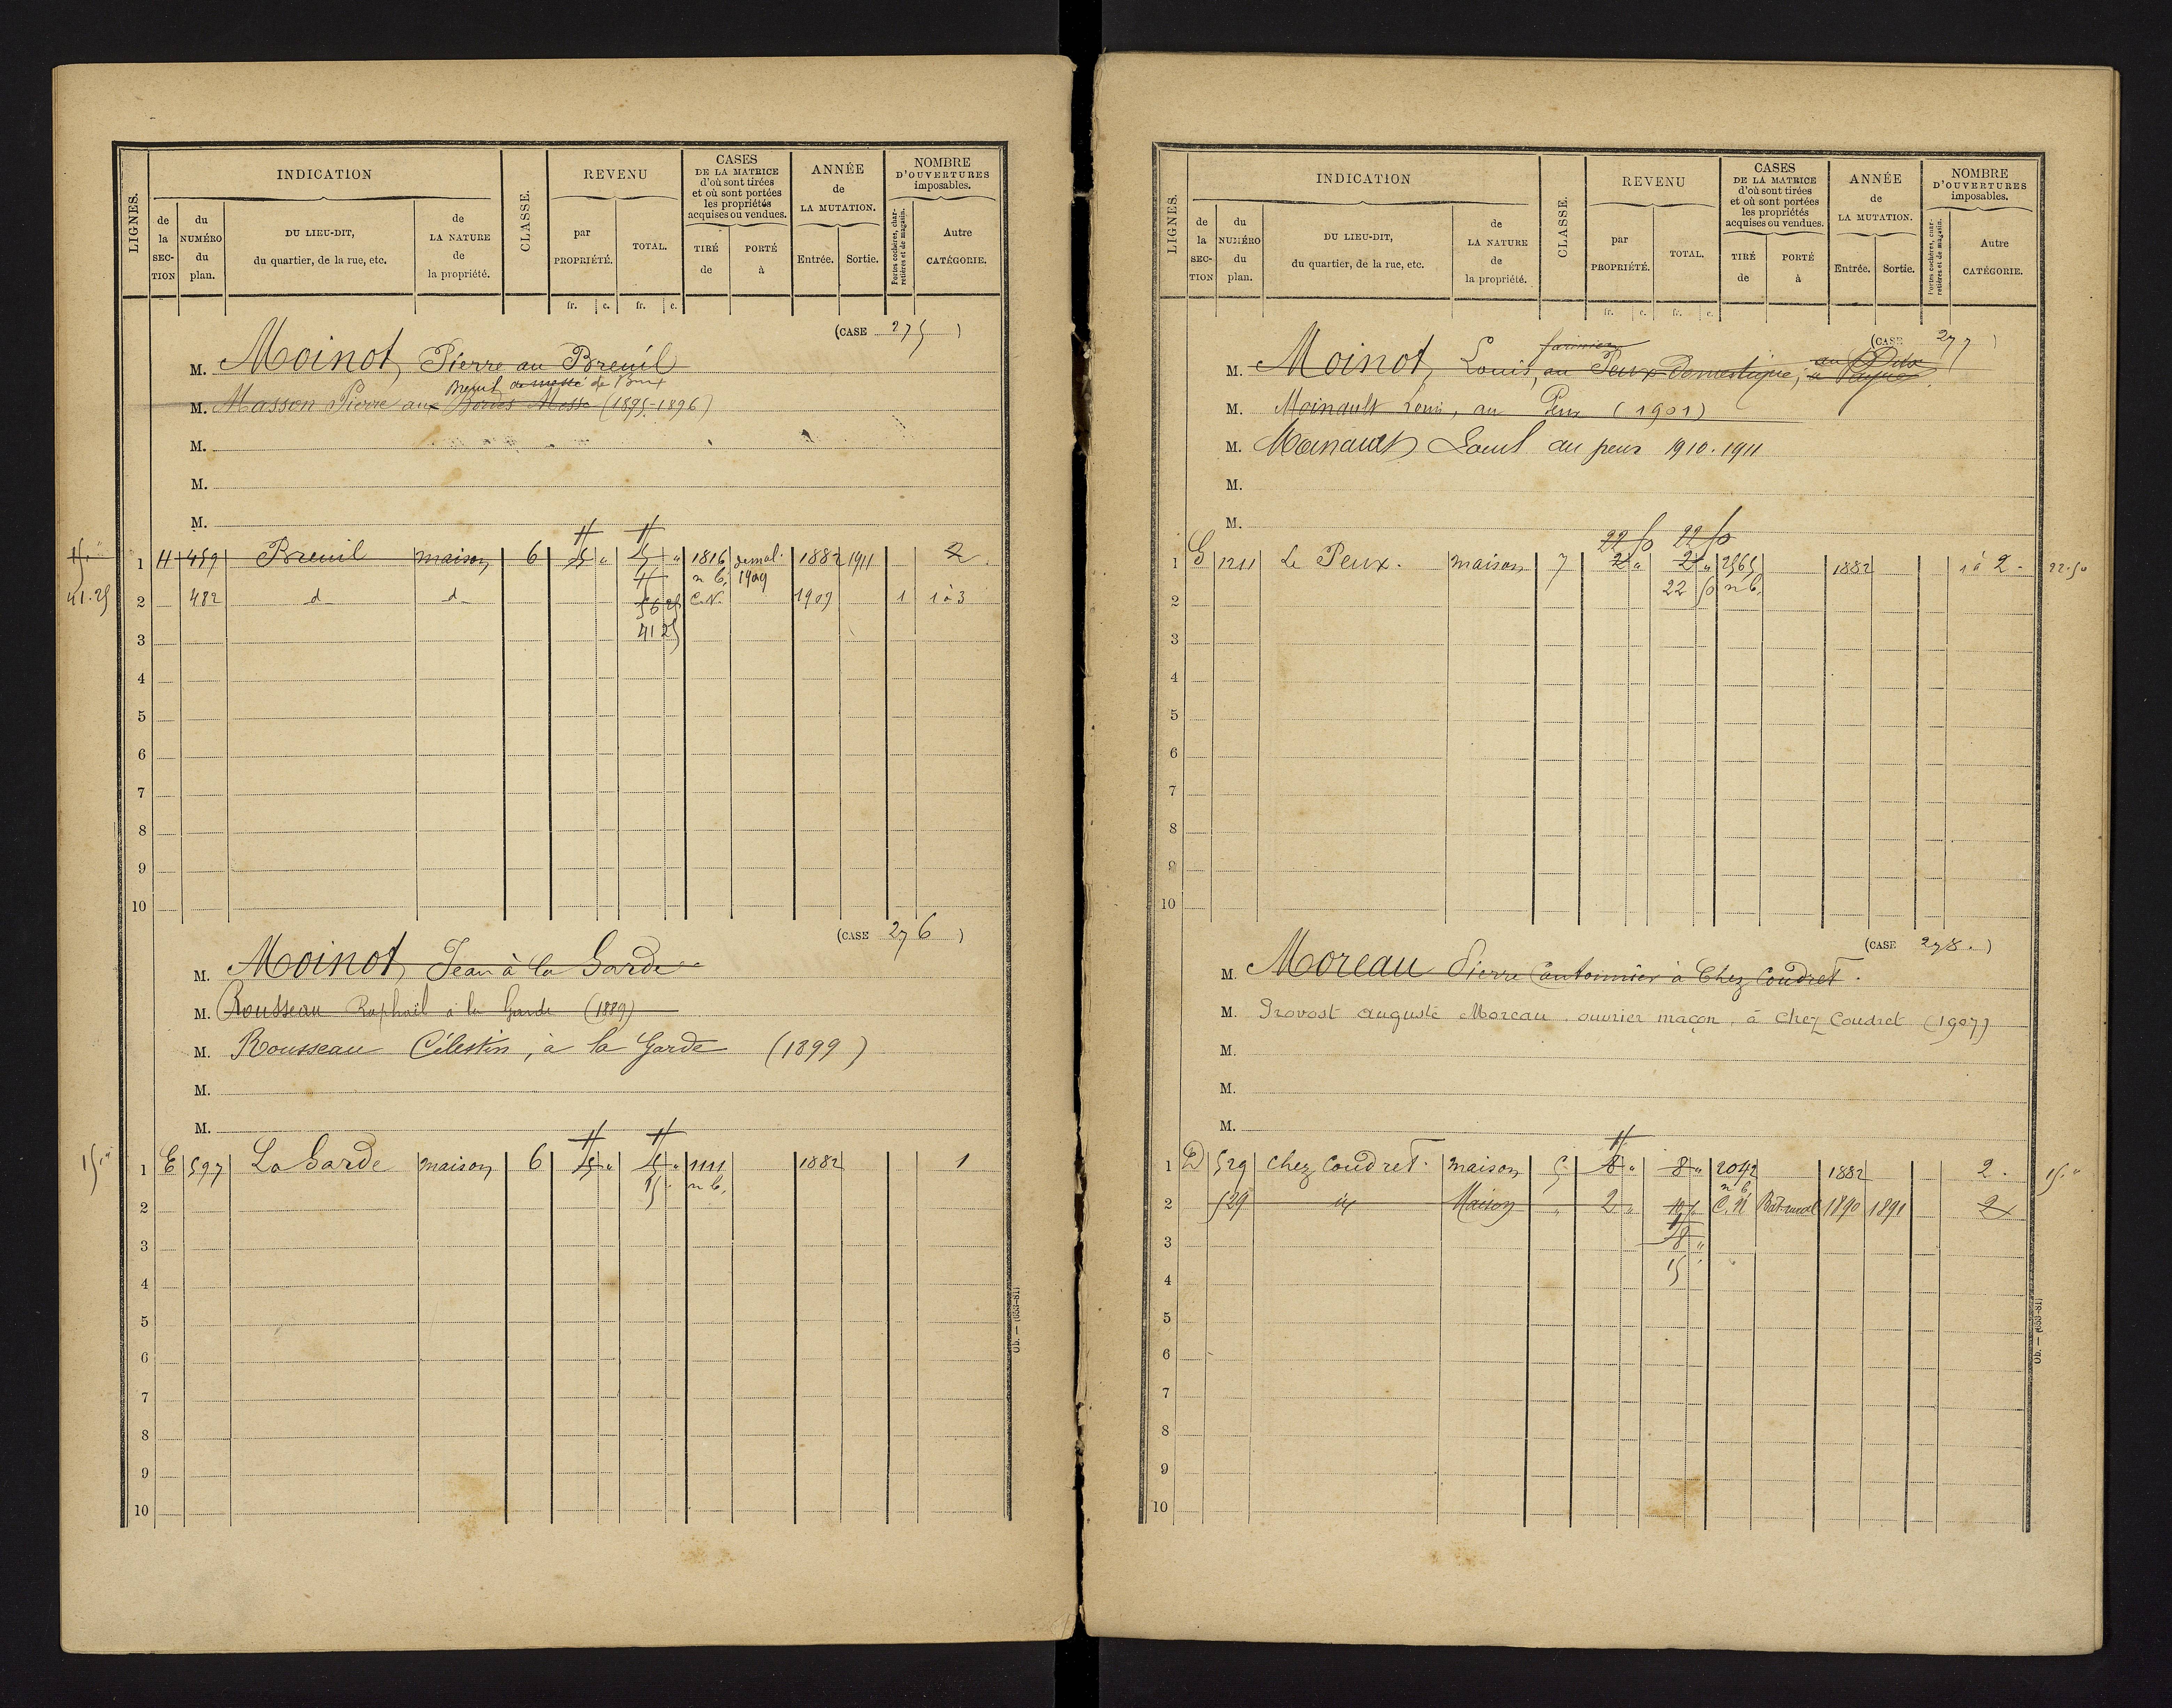 LIGNES.
INDICATION
de la SECTION
du NUMÉRO du plan.
DU LIEU-DIT, du quartier, de la rue, etc.
de LA NATURE de la propriété.
CLASSE.
REVENU
par PROPRIÉTÉ.
TOTAL.
fr. c. fr. c.
CASES DE LA MATRICE d'où sont tirées et où sont portées les propriétés acquises ou vendues.
TIRÉ de
PORTÉ à
ANNÉE de LA MUTATION.
Entrée. Sortie.
NOMBRE D'OUVERTURES imposables.
Portes cochères, charretières et de magasin.
Autre CATÉGORIE.
(CASE 275)
M. Moinot, Pierre au Breuil
Breuil de Bux
M. Masson Pierre aux Messe (1895-1896)
M.
M.
M.
1 H 459 Breuil maison 6 15 " 15 " 1816 demol. 1882 1911 2
n b, 1909
15 "
2 482 d d 56 25 C.N. 1909 1 1 à 3
41.25
41 25
3
4
5
6
7
8
9
10
(CASE 276)
M. Moinot, Jean à la Garde
M. Rousseau Raphaël à la Garde (1889)
M. Rousseau Célestin, à la Garde (1899)
M.
M.
1 E 597 La Garde maison 6 15 " 15 " 1111 1882 1
15 " n b,
15 "
2
3
4
5
6
7
8
9
10
Ob. — (653-81)
LIGNES.
INDICATION
de la SECTION
du NUMÉRO du plan.
DU LIEU-DIT, du quartier, de la rue, etc.
de LA NATURE de la propriété.
CLASSE.
REVENU
par PROPRIÉTÉ.
TOTAL.
fr. c. fr. c.
CASES DE LA MATRICE d'où sont tirées et où sont portées les propriétés acquises ou vendues.
TIRÉ de
PORTÉ à
ANNÉE de LA MUTATION.
Entrée. Sortie.
NOMBRE D'OUVERTURES imposables.
Portes cochères, charretières et de magasin.
Autre CATÉGORIE.
(CASE 277)
M. Moinot, Louis, au Peux Domestique,
M. Moinault Louis, au Peux (1901)
M. Moinault Louis au peux 1910.1911
M.
M.
22 50 22 50
1 G 1211 Le Peux. maison 7 2 " 2 " 2565 1882 1 à 2 22.50
22 50 n b,
2
3
4
5
6
7
8
9
10
(CASE 278.)
M. Moreau Pierre Cantonnier à Chez Coudret.
M. Provost auguste Moreau, ouvrier maçon, à Chez Coudret (1907)
M.
M.
M.
1 D 529 Chez Coudret. maison 5 8 " 8 " 2042 1882 2. 15 "
n b
2 529 id Maison " 2 " 10 " C.N Bat. rural 1890 1891 2
3 8 "
4 15 "
5
6
7
8
9
10
Ob. — (653-81)